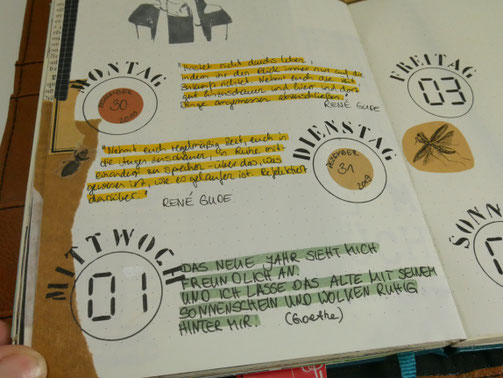 MONTAG
DEZEMBER
30
2019
indem ihr den Blick immer nur auf die
Zukunft richtet. Nehmt euch die Zeit
gut hinzuschauen und Eier und
Dinge angemessen
RENÉ GUDE
FREITAG
03
"Nehmt euch regelmäßig Zeit, euch in
die Augen zu schauen, in Ruhe mit
einander zu sprechen über das, was
gewesen ist, wie es gelaufen ist. Reflektiert
darüber."
RENÉ GUDE.
DIENSTAG
DEZEMBER
31
2019
MITTWOCH
01
DAS NEUE JAHR SIEHT MICH
FREUNDLICH AN.
UND ICH LASSE DAS ALTE MIT SEINEM
SONNENSCHEIN UND WOLKEN RUHIG
HINTER MIR. (Goethe)
SONN